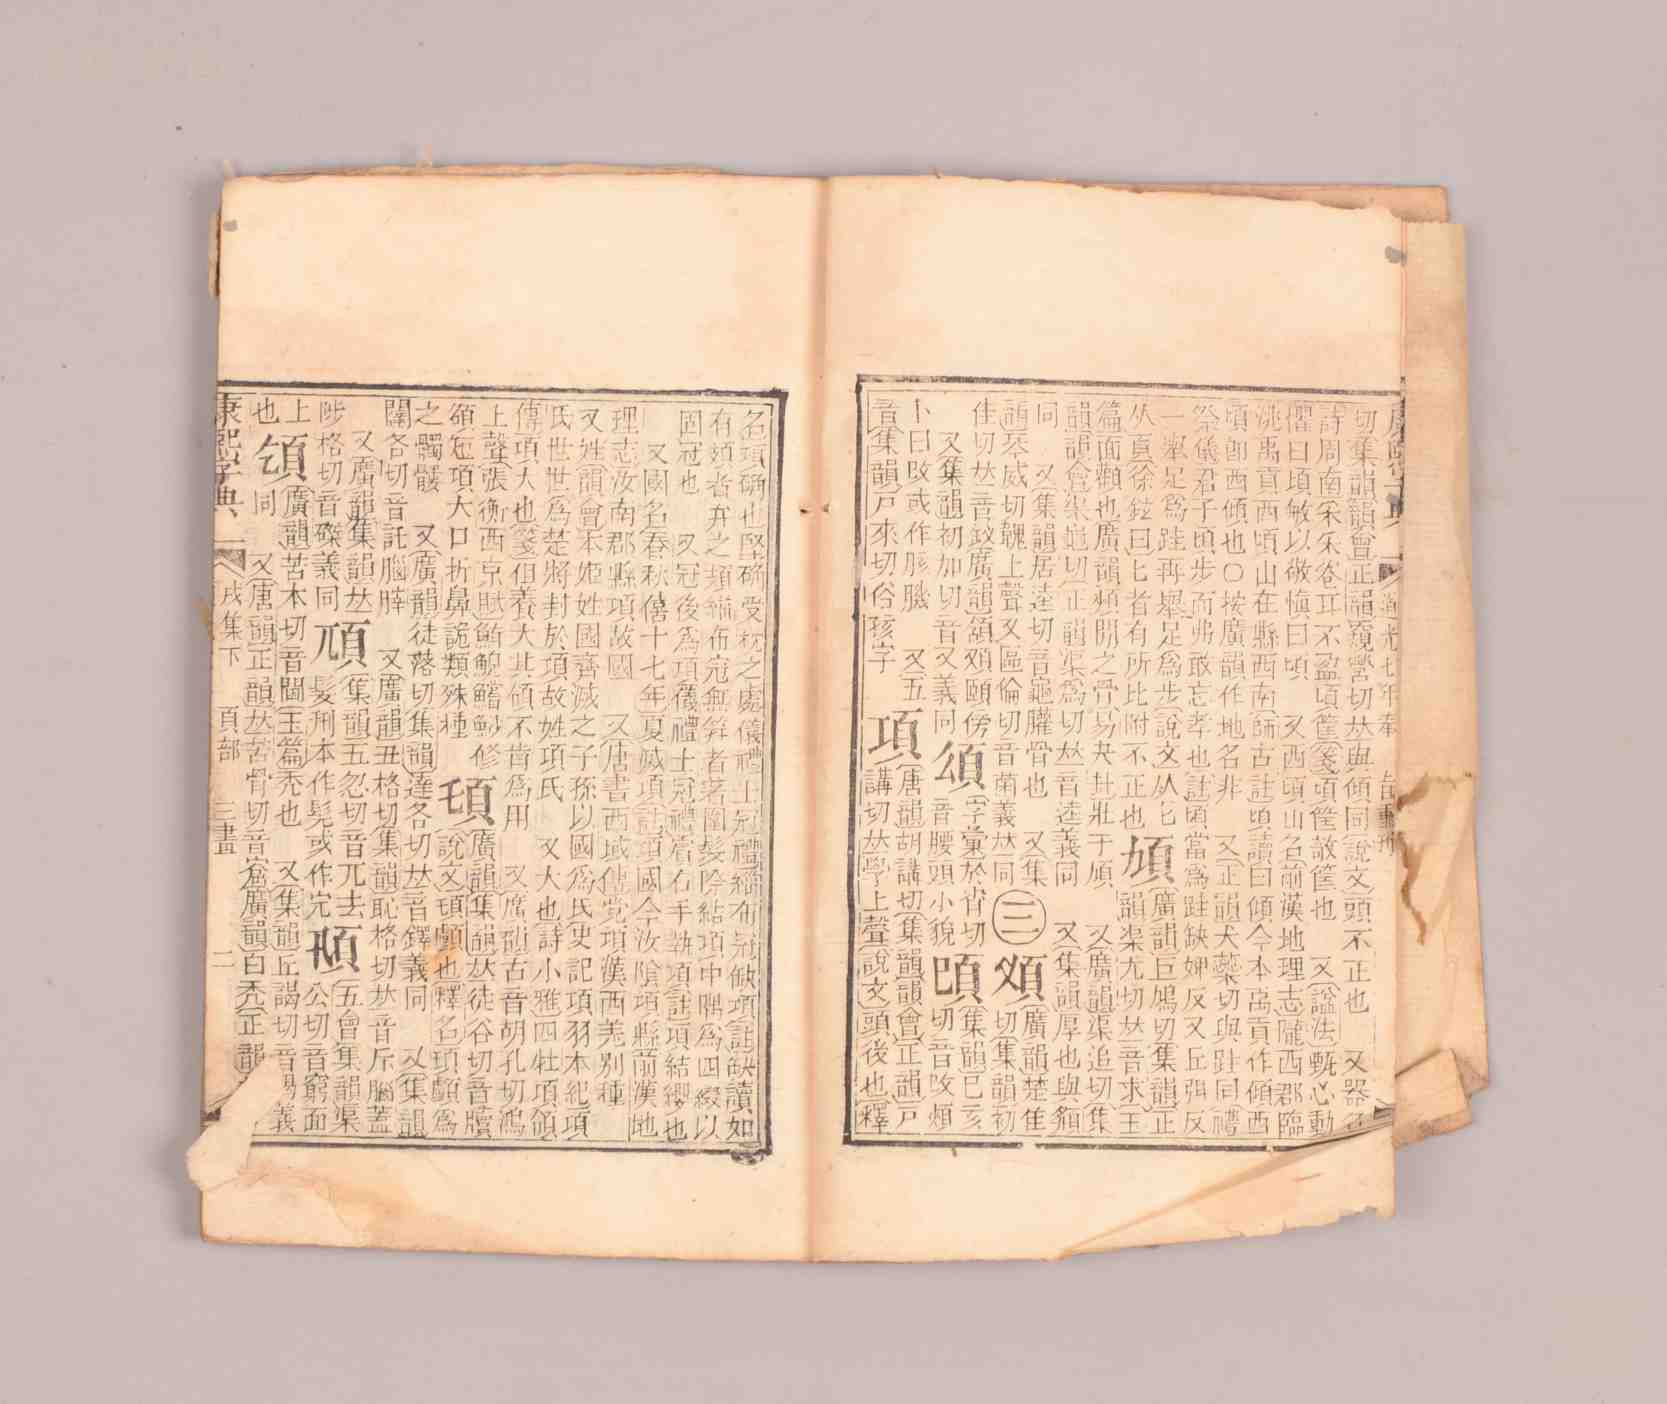 康熙字典 道光七年奉 旨重刊
切集韻韻會正韻窺營切𠀤與傾同說文頭不正也 又器名
詩周南采采卷耳不盈頃筐箋頃筐欹筐也 又諡法甄心動
懼曰頃敏以敬愼曰頃 又西頃山名前漢地理志隴西郡臨
洮禹貢西頃山在縣西南師古註頃讀曰傾今本禹貢作傾西
頃卽西傾也○按廣韻作地名非 又正韻犬橤切與跬同禮
祭儀君子頃步而弗敢忘孝也註頃當爲跬缺婢反又丘弭反
一舉足爲跬再舉足爲步說文从匕
从頁徐鉉曰匕者有所比附不正也
頄 廣韻巨鳩切集韻正
韻渠尤切𠀤音求玉
篇面顴也廣韻頰閒之骨易夬壯于頄 又廣韻渠追切集
韻韻會渠龜切正韻渠爲切𠀤音逵義同 又集韻厚也與䫥
同 又集韻居逵切音龜臞骨也 又集
韻琴威切 上聲又區倫切音菌義𠀤同
三 廣韻楚隹
切集韻初
隹切𠀤音 廣韻頟 頤傍
又集韻初加切音叉義同
字彙於宵切
音腰頭小貌
集韻巳亥
切音改頰
卜曰改或作胲 又五
音集韻戶來切俗孩字
項 唐韻胡講切集韻韻會正韻戶
講切𠀤學上聲說文頭後也釋
名項确也堅确受枕之處儀禮士冠禮緇布冠缺項註缺讀如
有頍者弁之頍緇布冠無筓者著圍髮際結項中隅爲四綴以
固冠也 又冠後爲項儀禮士冠禮賓右手執項註項結纓也
又國名春秋僖十七年夏滅項註項國今汝隂項縣前漢地
理志汝南郡縣項故國 又唐書西域傳党項漢西羌別種
又姓韻會本姬姓國齊滅之子孫以國爲氏史記項羽本紀項
氏世世爲楚將封於項故姓項氏 又大也詩小雅四牡項領
傳項大也箋但養大其領不肯爲用 又廣韻古音胡孔切鴻
上聲張衡西京賦鮪鯢鱨魦修
額短項大口折鼻詭類殊種
廣韻集韻𠀤徒谷切音牘
說文 顱也釋名 顱爲
之髑髏 又廣韻徒落切集韻達各切𠀤音鐸義同 又集韻
闥各切音託腦 又廣韻丑格切集韻恥格切𠀤音斥腦蓋
又廣韻集韻𠀤
陟格切音磔義同
集韻五忽切音兀去
髮刑本作髡或作完
五音集韻渠
公切音窮面
上
也
廣韻苦本切音閫玉篇禿也 又集韻丘謁切音朅義
同 又唐韻正韻𠀤苦骨切音窟廣韻白禿正韻
康熙字典 戌集下 頁部 三畫 二